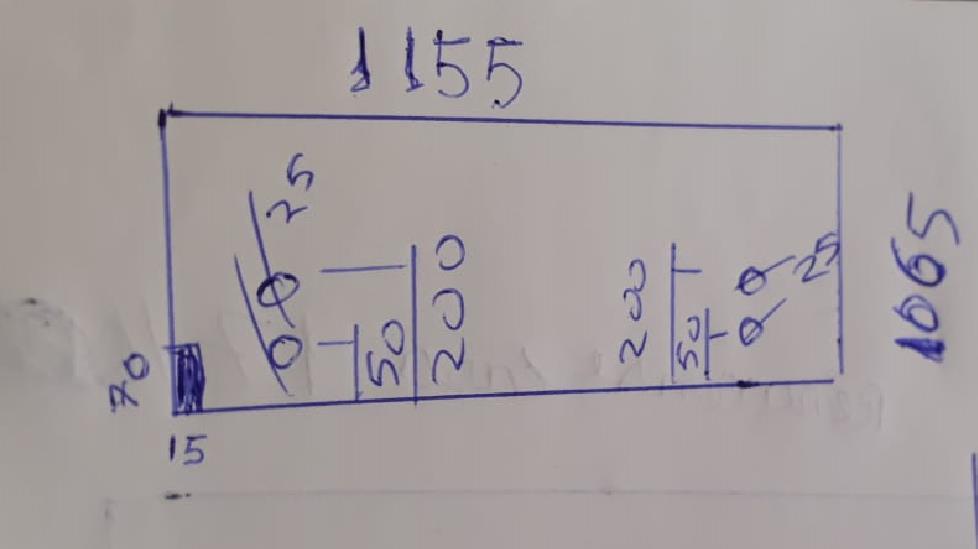 1155
25
200
50
200
50
25
1065
70
15